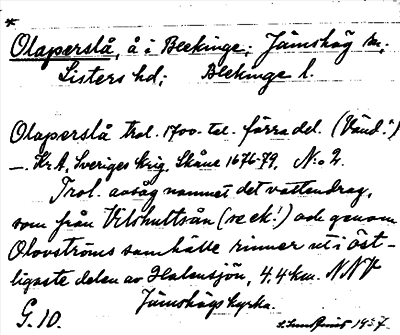 *
Olaperslå, å i Blekinge; Jämshög sn;
Listers hd; Blekinge l.
Olaperslå trol. 1700-tal. förra del. (Vänd!)
–. KrA, Sveriges krig, Skåne 1676-79, N:o 2.
Trol. avsåg namnet det vattendrag,
som från Vilshultsån (se ek!) och genom
Olovströms samhälle rinner ut i öst-
ligaste delen av Halensjön, 4,4 km. NNV
Jämshögs kyrka.
G. 10. 1937.